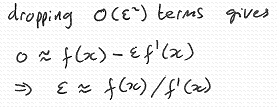 dropping O(ε²) terms gives
0 ≈ f(x) - εf'(x)
⇒ ε ≈ f(x)/f'(x)